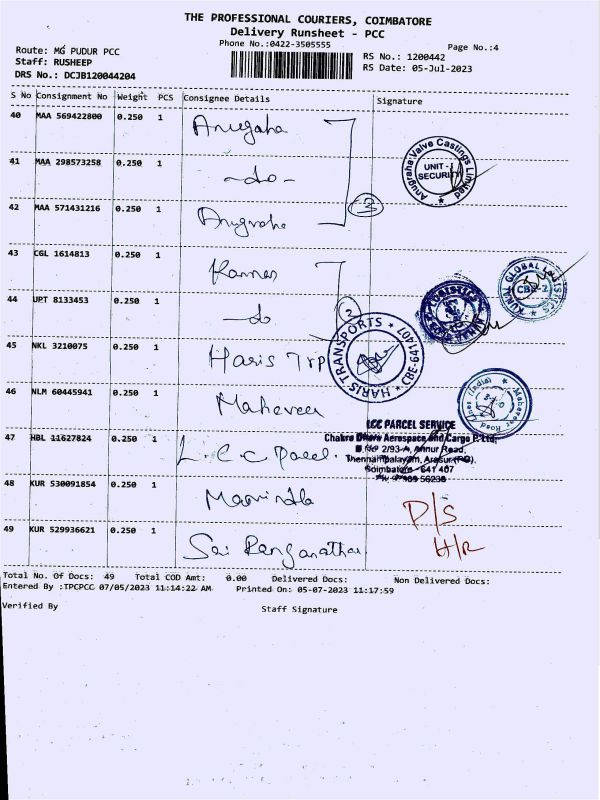 THE PROFESSIONAL COURIERS, COIMBATORE
Delivery Runsheet - PCC
Phone No.:0422-3505555
Page No.:4
Route: MG PUDUR PCC
Staff: RUSHEEP
DRS No.: DCJB120044204
RS No.: 1200442
RS Date: 05-Jul-2023
S No Consignment No Weight PCS Consignee Details Signature
40 MAA 569422800 0.250 1 Anugraha
Anugraha Valve Castings Limited
UNIT -
SECURITY
41 MAA 298573258 0.250 1 -do-
42 MAA 571431216 0.250 1 Anugraha
3
43 CGL 1614813 0.250 1
KUNAL GLOBAL LOGISTICS
CBE-2
44 UPT 8133453 0.250 1 -do
2
45 NKL 3210075 0.250 1 Haris Trp
HARIS TRANSPORTS
CBE-641407
46 NLM 60445941 0.250 1 Maheveer
47 HBL 11627824 0.250 1 L.C.C Parcel.
LCC PARCEL SERVICE
Chakra Offers Aerospace and Cargo P. Ltd,
2/93-A, Annur Road,
Thennampalayam, Arasur (PO),
Coimbatore - 641 407
48 KUR 530091854 0.250 1
D/S
49 KUR 529936621 0.250 1 Sai Ranganathar
H/R
Total No. Of Docs: 49 Total COD Amt: 0.00 Delivered Docs: Non Delivered Docs:
Entered By :TPCPCC 07/05/2023 11:14:22 AM Printed On: 05-07-2023 11:17:59
Verified By Staff Signature